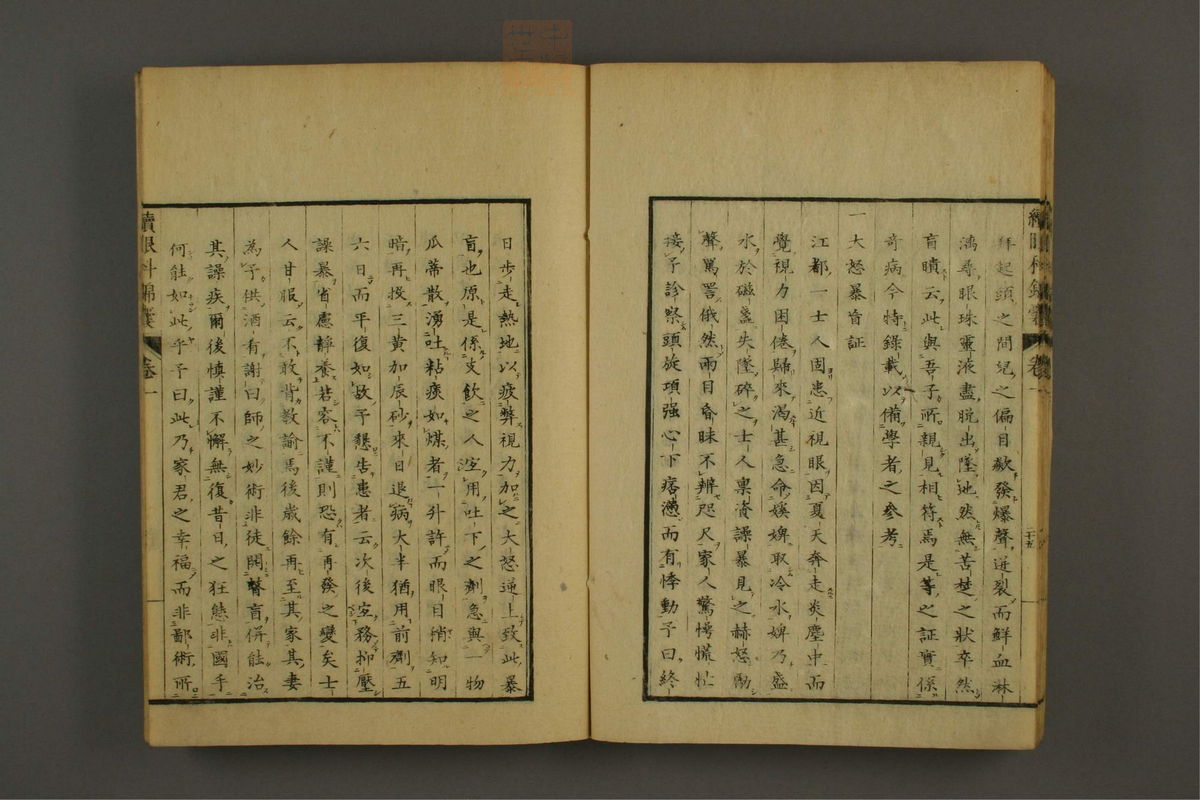 拜起頭之間兒之偏目歘發爆聲迸裂而鮮血淋
漓尋眼珠靈液盡脫出墜地然無苦楚之狀卒然
盲瞶云此與吾子所親見相符焉是等之証實係
奇病今特錄載以備學者之參考
一大怒暴盲証
江都一士人固患近視眼因夏天奔走炎塵中而
覺視力困倦歸來渴甚急命媄婢取冷水婢乃盛
水於磁盞失墜碎之士人稟資譟暴見之赫怒勵
聲罵詈俄然兩目昏昧不辨咫尺家人驚愕慌忙
接予診察頭旋項强心下痞懣而有悸動予曰終
二十五
日步走熱地以疲弊視力加之大怒逆上致此暴
盲也原是係支飲之人宜用吐下之劑急與一物
瓜蒂散湧吐粘痰如煤者一升許而眼目稍知明
暗再投三黃加辰砂來日退病大半猶用前劑五
六日而平復如故予懇告患者云次後宜務抑壓
譟暴省慮靜養若容不謹則恐有再發之變矣士
人甘服云不敢背教諭焉後歲餘再至其家其妻
為予供酒有謝曰師之妙術非徒開瞽盲併能治
其譟疾爾後慎謹不懈無復昔日之狂態非國手
何能如此乎予曰此乃家君之幸福而非鄙術所
續眼科錦囊 卷一